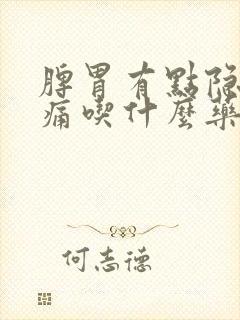 脾胃有點隐
痛喫什麼藥
何志德